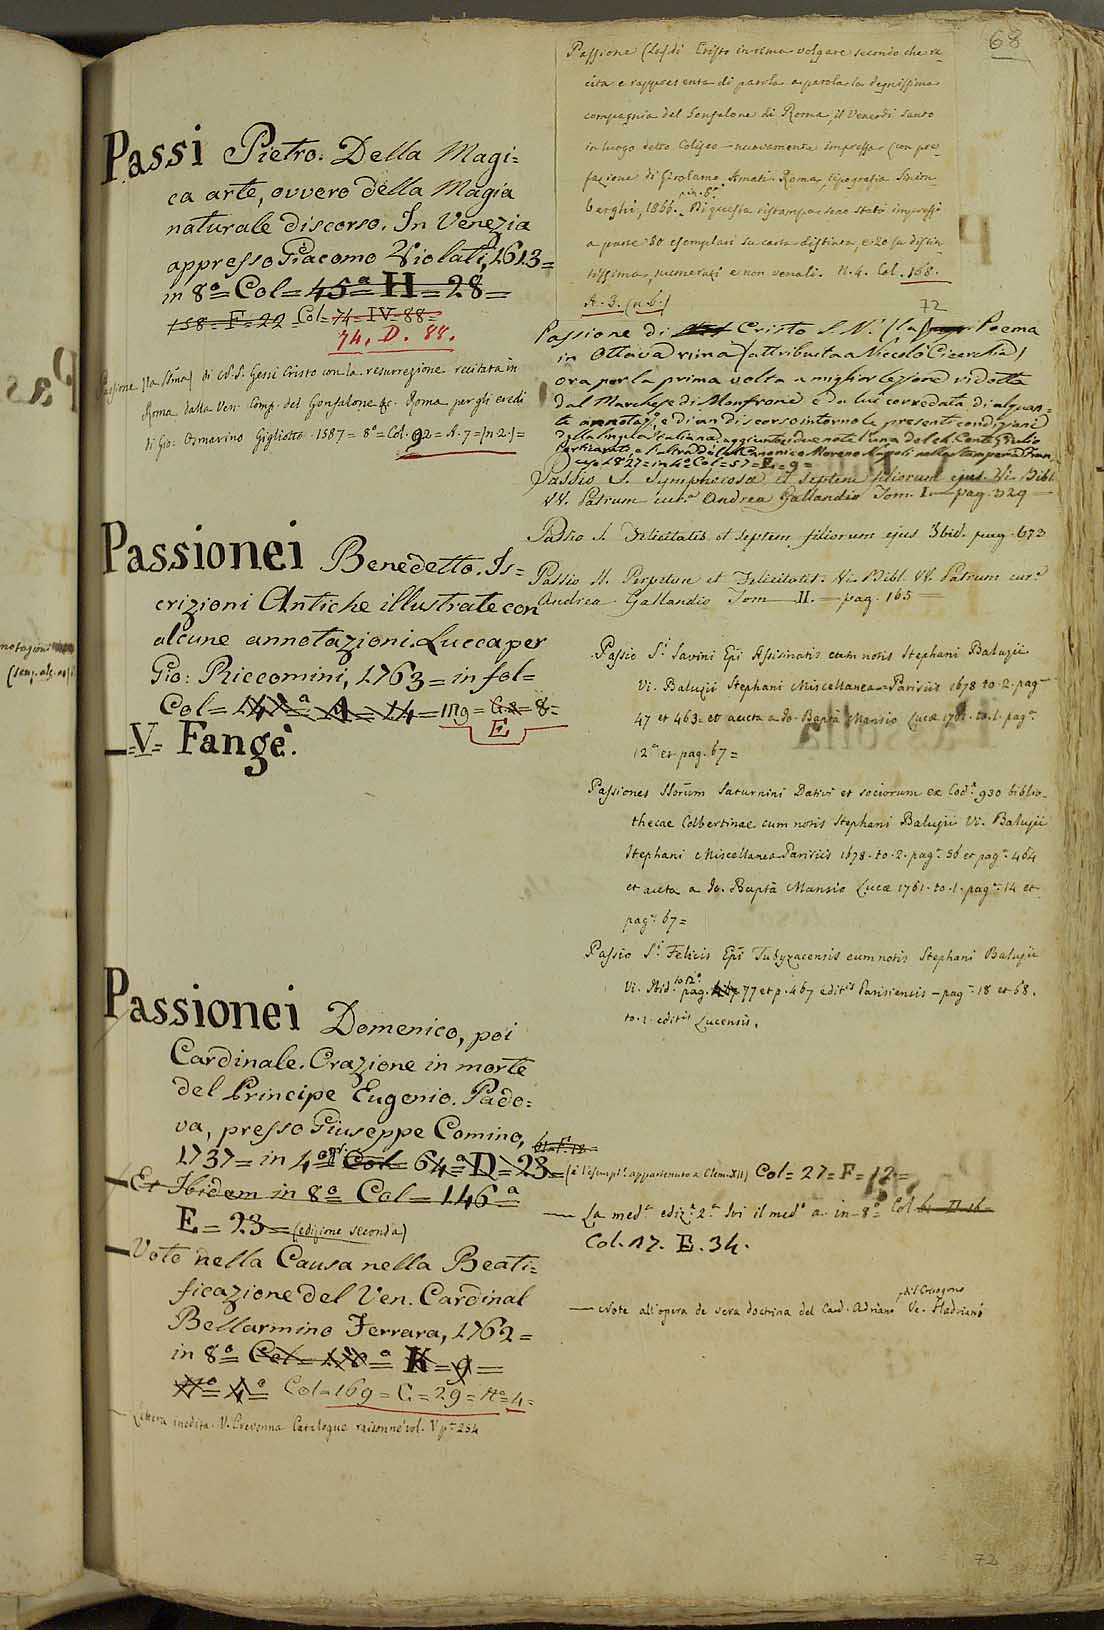 68
Passi Pietro. Della Magi=
ca arte, ovvero della Magia
naturale discorso. In Venezia
appresso Giacomo Violati, 1613=
in 8º= Col= 45ª= H= 28=
158= F= 22= Col= 74= IV= 88=
74. D. 88.
Passione (la Sma) di N. S. Gesù Cristo con la resurrezione recitata in
Roma dalla Ven. Comp. del Gonfalone &c. Roma per gli eredi
di Gio: Osmarino Gigliotto 1587= 8º= Col. 92= A. 7= (n. 2.)=
Passionei Benedetto. Is=
crizioni Antiche illustrate con
alcune annotazioni. Lucca per
Gio: Riccomini, 1763= in fol=
Col= 14= mg= 8=
E
=V= Fangè.
Passionei Domenico, poi
Cardinale. Orazione in morte
del Principe Eugenio. Pado=
va, presso Giuseppe Comino,
1737= in 4º Col= 64ª= D= 23= (è l'esempl. appartenuto a Clem. XII) Col= 27= F= 12=
Et Ibidem in 8º Col= 146ª
E= 23= (edizione seconda)
Voto nella Causa nella Beati=
ficazione del Ven. Cardinal
Bellarmino Ferrara, 1762=
in 8º= Col= = K= 9=
Nº= 4º= Col= 169= C.= 29= Nº= 4=
Lettera inedita. V. Crevenna Catalogue raisonné vol. V pª 254
Passione (la) di Cristo in rima volgare secondo che re
cita e rappresenta di parola a parola la degnissima
compagnia del Gonfalone di Roma, il Venerdì Santo
in luogo detto Coliseo — nuovamente impressa (con pre
fazione di Girolamo Amati. Roma, tipografia Sinim
berghi, 1866. in 8º. Di questa ristampa sono stati impressi
a parte 80 esemplari su carta distinta, e 20 su distin
tissima, numerati e non venali. N. 4. Col. 168.
A. 3. (n. 6.)
72
Passione di Cristo S. N. (la) Poema
in Ottava rima (attribuita a Niccolò Cicerchia)
ora per la prima volta a miglior lezione ridotta
dal Marchese di Monfrone e da lui corredata di alquan=
te annotazi, e di un discorso intorno le presenti condizioni
della lingua Italiana, aggiuntevi due note l'una del ch. Conte Giulio
Perticari, e l'altra del Canonico Moreno Napoli nella stamperia Fran
cese 1827= in 4º Col= 57= E= 9=
Passio S. Symphorosae et septem filiorum ejus. Vi. Bibl.
VV. Patrum cura Andrea Gallandio Tom. I.— pag. 329 —
Passio S. Felicitatis et septem filiorum ejus Ibid. pag. 673
Passio SS. Perpetuae et Felicitatis. Vi. Bibl. VV. Patrum curª
Andrea Gallandio Tom — II. — pag. 165 —
Passio Si Savini Epi Assisinatis cum notis Stephani Baluzii
Vi. Baluzii Stephani Miscellanea. Parisiis 1678 to. 2. pag
47 et 463= et aucta a Jo. Bapta Mansio Lucae 1761. to. 1. pag.
12ª et pag. 67=
Passiones SSorum Saturnini Dativi et sociorum ex Cod. 930 biblio
thecae Colbertinae cum notis Stephani Baluzii Vi. Baluzii
Stephani Miscellanea. Parisiis 1678. to. 2. pag. 56 et pag. 464
et aucta a Jo. Bapta Mansio Lucae 1761. to. 1. pag. 14 et
pag. 67=
Passio Si Felicis Epi Tubyzacensis cum notis Stephani Baluzii
Vi. Ibid. to 2º pag. 77 et p. 467 editis Parisiensis — pag. 18 et 68.
to. 1. editis Lucensis.
— La medª edizª 2ª Ivi il medº a. in 8º= Col
Col. 17. E. 34.
— Note all'opera de vera doctrina del Card. Adriano di S. Crisogono Ve. Hadriano
72